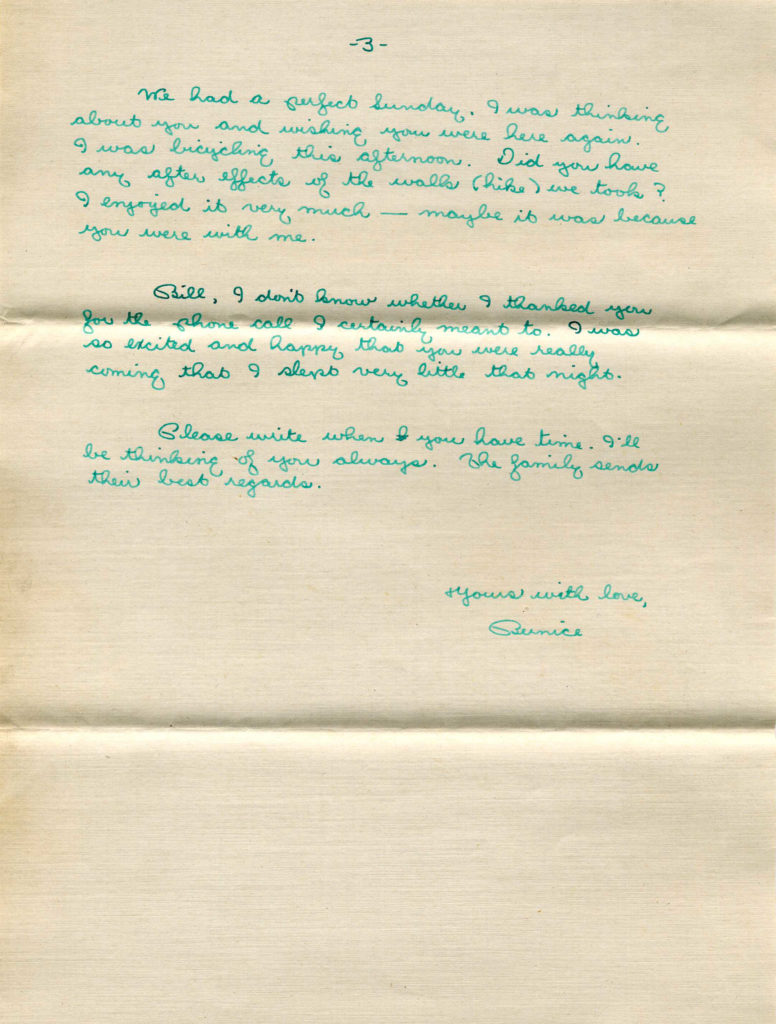 -3-
We had a perfect Sunday. I was thinking
about you and wishing you were here again.
I was bicycling this afternoon. Did you have
any after effects of the walk (hike) we took?
I enjoyed it very much — maybe it was because
you were with me.
Bill, I don't know whether I thanked you
for the phone call I certainly meant to. I was
so excited and happy that you were really
coming that I slept very little that night.
Please write when you have time. I'll
be thinking of you always. The family sends
their best regards.
Yours with love,
Bernice